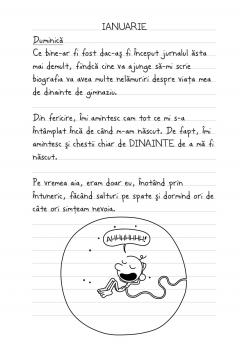 IANUARIE
Duminică
Ce bine-ar fi fost dac-aș fi început jurnalul ăsta
mai demult, fiindcă cine va ajunge să-mi scrie
biografia va avea multe nelămuriri despre viața mea
de dinainte de gimnaziu.
Din fericire, îmi amintesc cam tot ce mi s-a
întâmplat încă de când m-am născut. De fapt, îmi
amintesc și chestii chiar de DINAINTE de a mă fi
născut.
Pe vremea aia, eram doar eu, înotând prin
întuneric, făcând salturi pe spate și dormind ori de
câte ori simțeam nevoia.
AHHHHHHH!